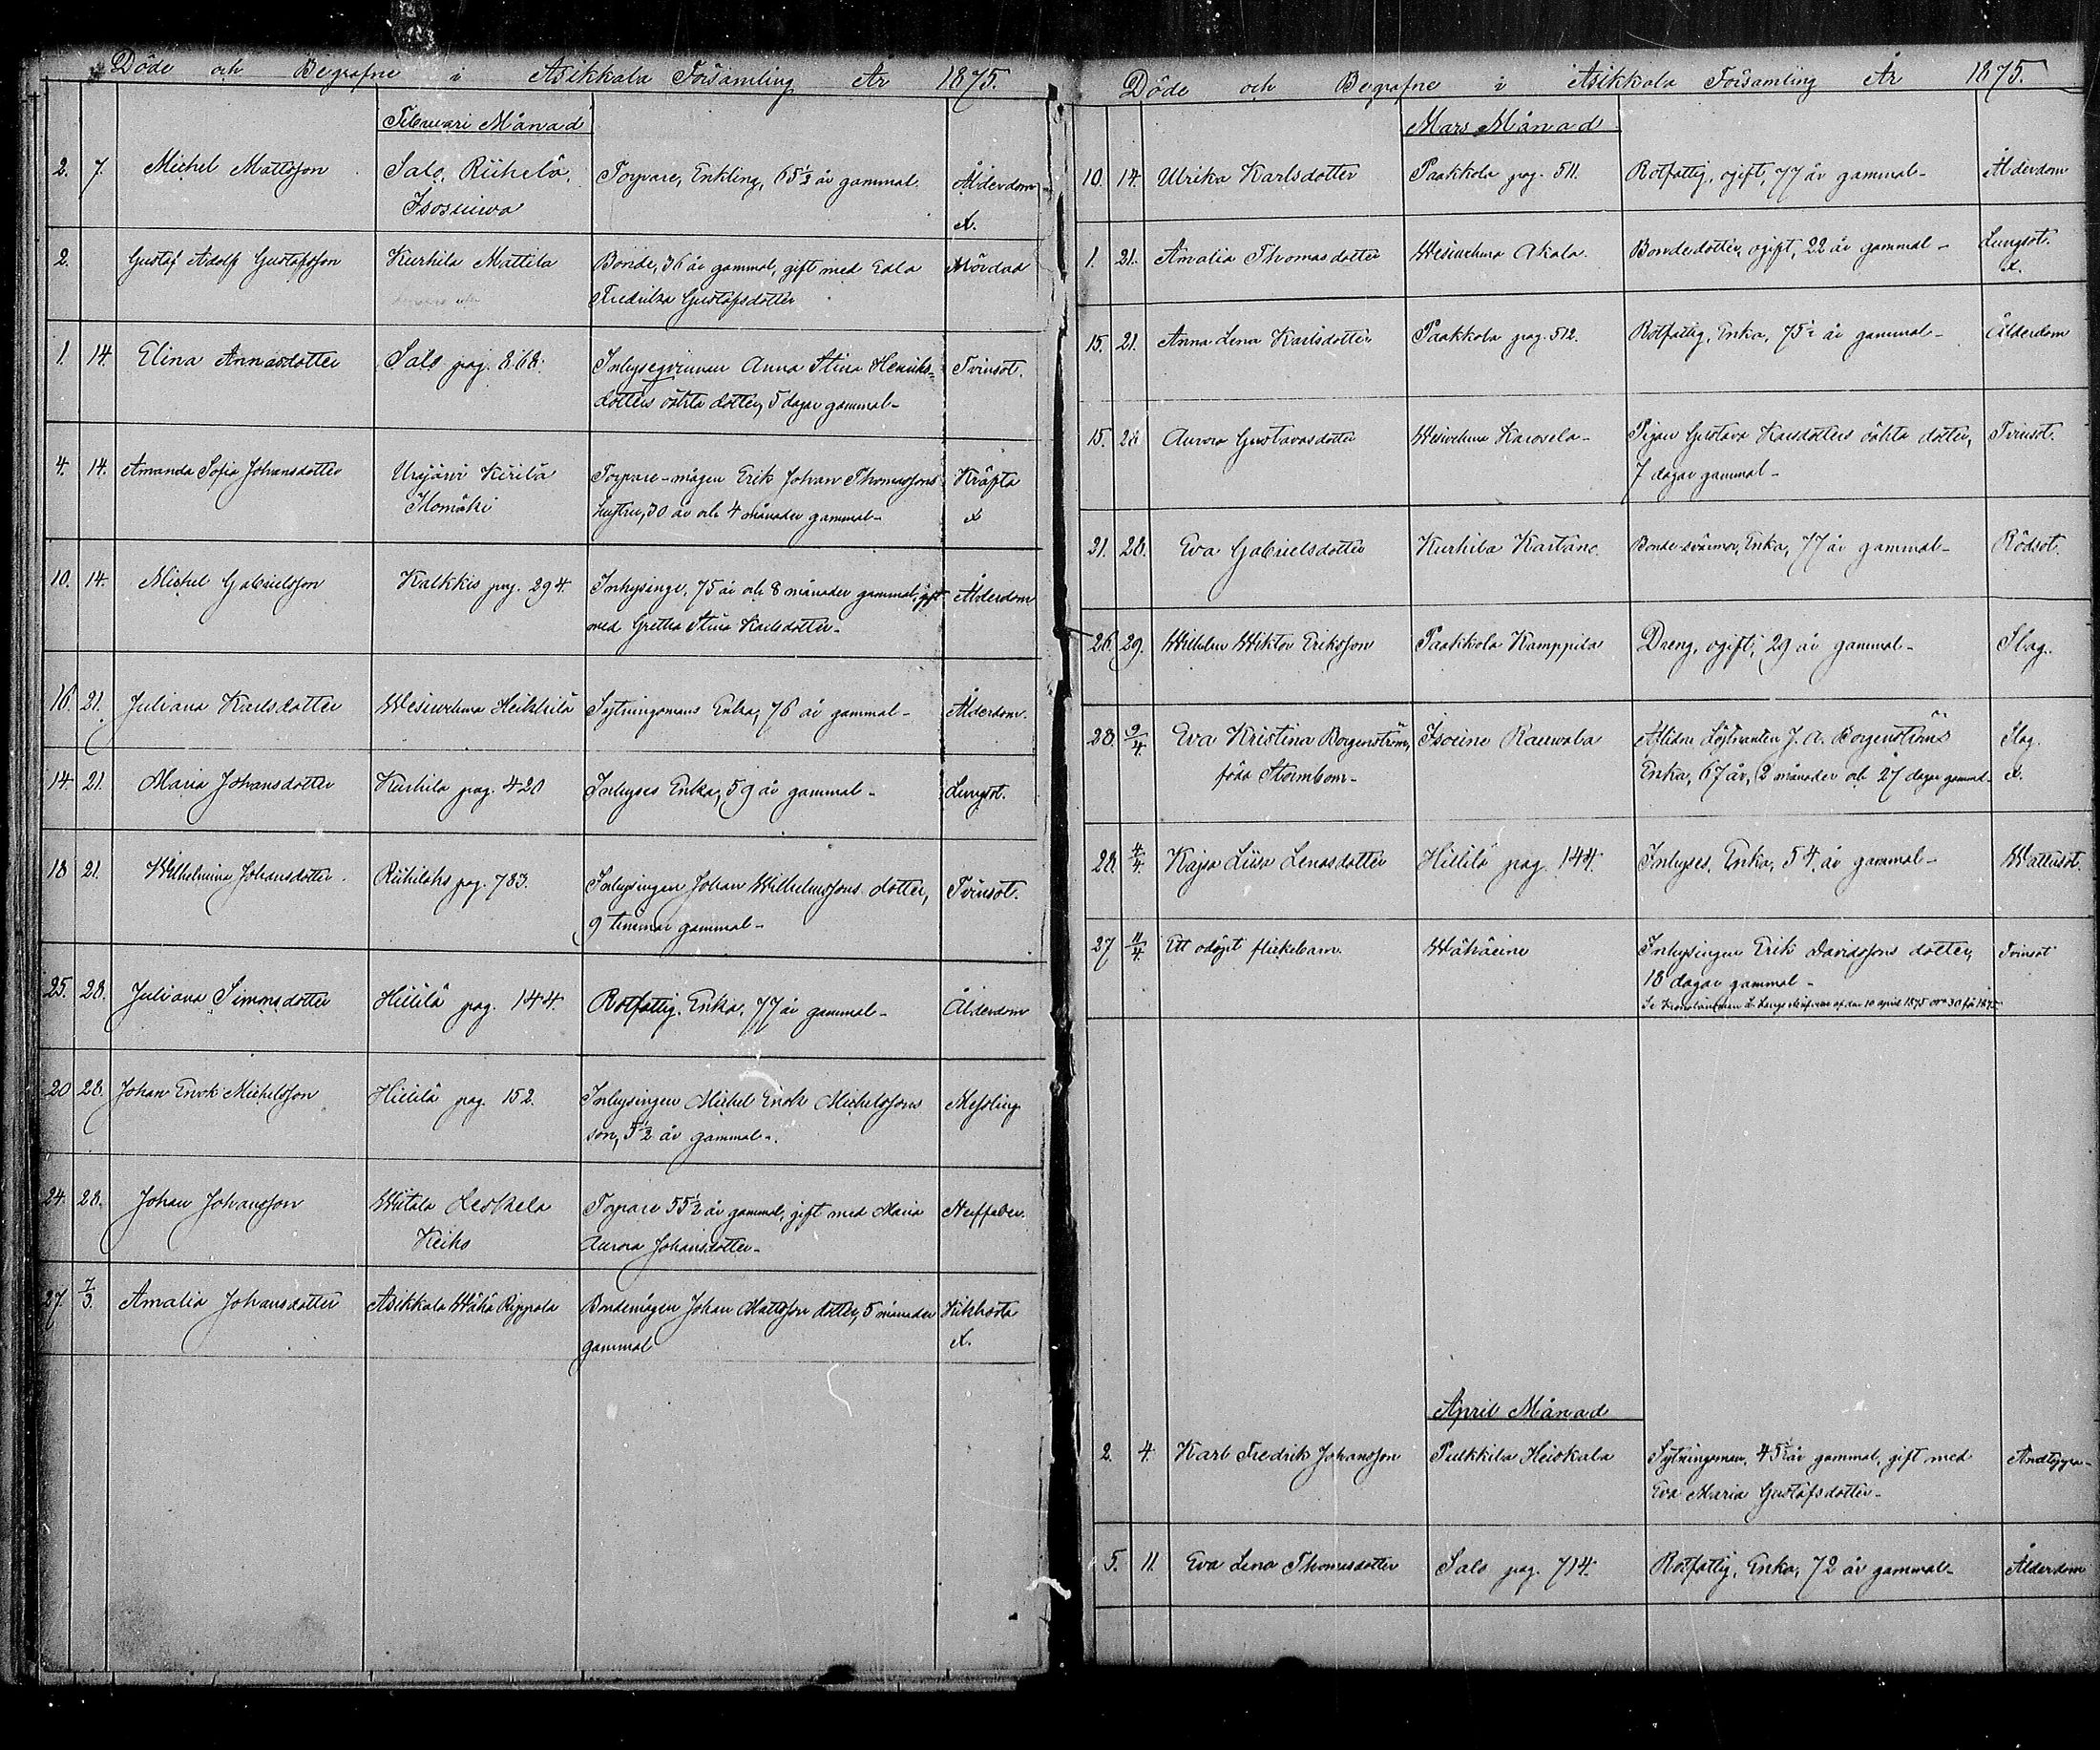 Döde och Begrafne i Asikkala Församling År 1875.
Februari Månad
2. 7. Michel Mattsson Salo, Riihelä, Torpare, Enkling, 65½ år gammal. Ålderdom
Isosuiwa x.
2. Gustaf Adolf Gustafsson Kurhila Mattila Bonde, 36 år gammal, gift med Edla Mördad
Fredrika Gustafsdotter
1. 14. Elina Annasdotter Salo pag. 868. Inhyseqvinnan Anna Stina Henriks= Trinsot.
dotters oäkta dotter, 5 dagar gammal-
4. 14. Amanda Sofia Johansdotter Urajärvi Kirilä Torpare-mågen Erik Johan Thomassons Kräfta
Ilomäki hustru, 30 år och 4 månader gammal- x
10. 14. Michel Gabrielsson Kalkkis pag. 294. Inhysinge, 75 år och 8 månader gammal, gift Ålderdom
med Gretha Stina Karlsdotter-
16. 21. Juliana Karlsdotter Wesiwehma Heikkilä Sytningsmans Enka, 76 år gammal- Ålderdom.
14. 21. Maria Johansdotter Kurhila pag. 420 Inhyses Enka, 59 år gammal- Lungsot.
18 21. Wilhelmina Johansdotter. pag. 783. Inhysingen Johan Wilhelmssons dotter, Trinsot.
9 timmar gammal-
25. 28. Juliana Simonsdotter Hillilä pag. 144. Rotfattig. Enka, 77 år gammal- Ålderdom
20 28. Johan Enok Michelsson Hillilä pag. 152. Inhysingen Michel Enok Michelssons Messling
son, 5½ år gammal-.
24. 28. Johan Johansson Wiitala Leskelä Torpare 55½ år gammal, gift med Maria Nerffeber.
Keiho Aurora Johansdotter-
27. 7/3. Amalia Johansdotter Asikkala Wähä Rippola Bondemågen Johan Mattsson dotter, 5 månader Kikhosta
gammal x.
Döde och Begrafne i Asikkala Församling År 1875.
Mars Månad
10. 14. Ulrika Karlsdotter Paakkola pag. 511. Rotfattig, ogift, 77 år gammal- Ålderdom
1. 21. Amalia Thomasdotter Wesiwehma Akala. Bondedotter, ogift, 22 år gammal- Lungsot.
x.
15. 21. Anna Lena Karlsdotter Paakkola pag. 512. Rotfattig, Enka, 75½ år gammal- Ålderdom
15. 28 Aurora Gustavasdotter Wesiwehma Pigan Gustava Karsdotters oäkta dotter, Trinsot.
7 dagar gammal-
21. 28. Eva Gabrielsdotter Kurhila Kartano. Bonde-svärmor, Enka, 77 år gammal- Rödsot.
26. 29. Wilhelm Wiktor Eriksson Paakkola Kamppila Dreng, ogift, 29 år gammal- Slag.
28. 9/4. Eva Kristina Borgenström, Isoeine Rauwala Aflidne Löjtnanten J. A. Borgenströms Slag.
föda Stormbom- Enka, 67 år, 2 månader och 27 dagar gammal- x.
28. 4/4. Kajsa Liisa Lenasdotter Hillilä pag. 144. Inhyses, Enka, 54 år gammal- Wattusot.
27 11/4. Ett odöpt flickebarn. Wähäeine Inhysingen Erik Davidssons dotter, Trinsot
18 dagar gammal-
Se af den 10 april 1875 No 30 för 1875
April Månad
2. 4. Karl Fredrik Johansson Pulkkila Heiskala Sytningsman, 45½ år gammal, gift med Andtäppa-
Eva Maria Gustafsdotter-
5. 11. Eva Lena Thomasdotter Salo pag. 714. Rotfattig, Enka, 72 år gammal- Ålderdom